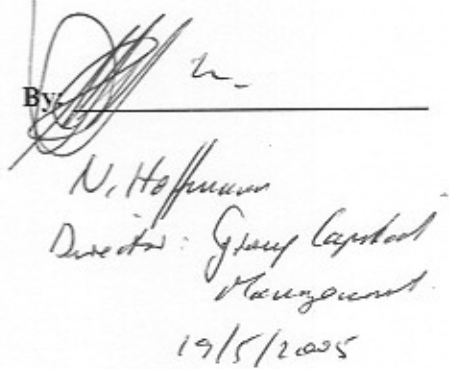 By:
N. Hoffmann
Director: Group Capital
Management
19/5/2005